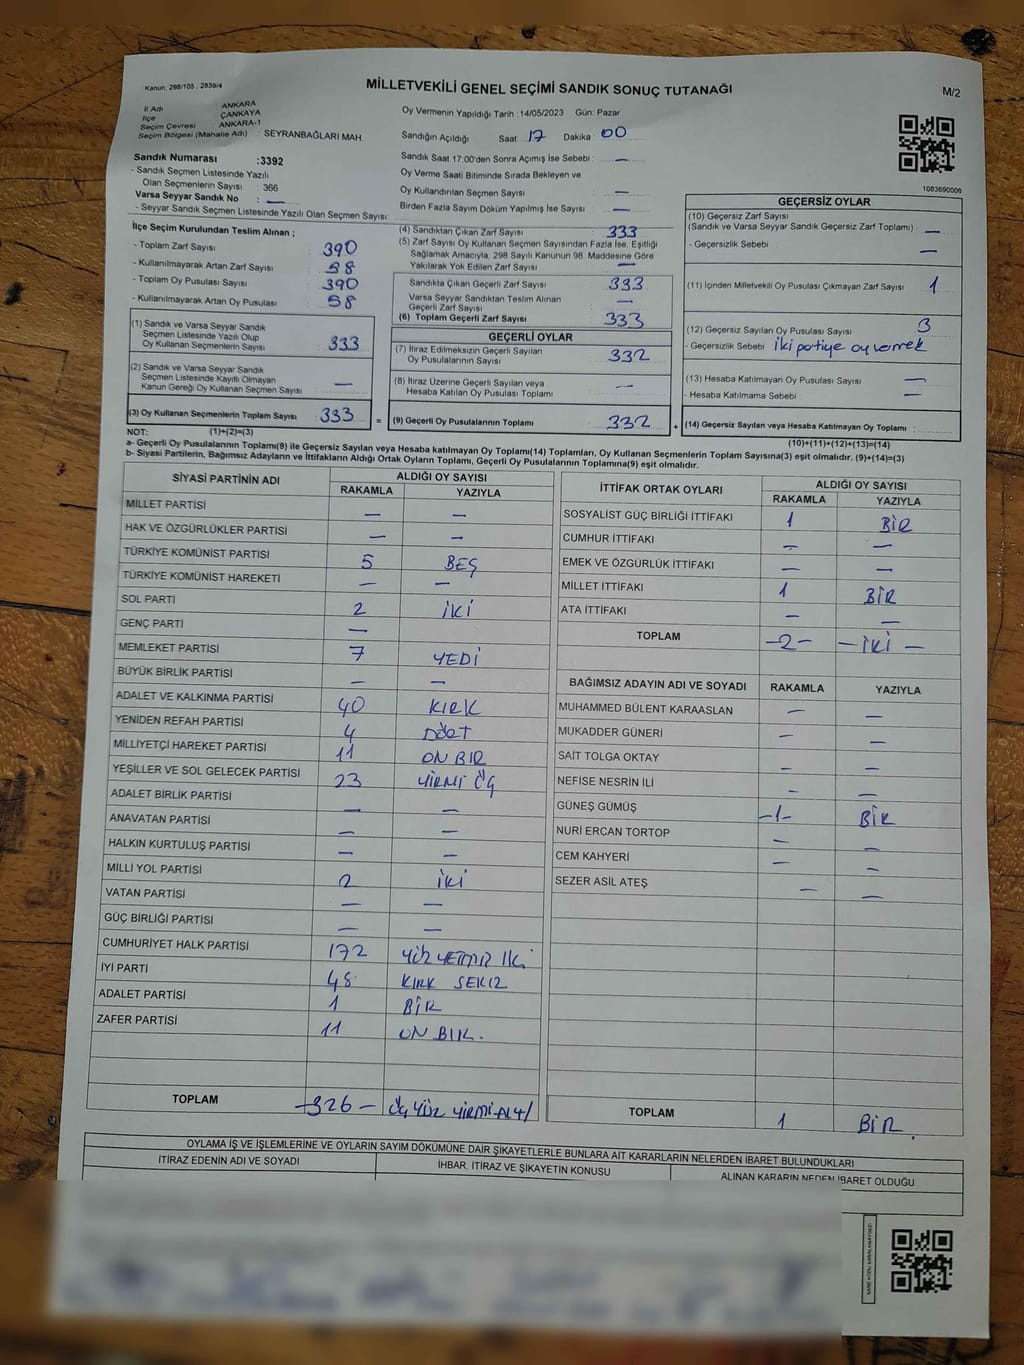 Kanun: 298/105, 2839/4
MİLLETVEKİLİ GENEL SEÇİMİ SANDIK SONUÇ TUTANAĞI
M/2
İl Adı ANKARA
İlçe ÇANKAYA
Seçim Çevresi ANKARA-1
Seçim Bölgesi (Mahalle Adı) : SEYRANBAĞLARI MAH.
Oy Vermenin Yapıldığı Tarih : 14/05/2023 Gün: Pazar
Sandığın Açıldığı Saat 17 Dakika 00
Sandık Saat 17:00'den Sonra Açımış İse Sebebi : —
Oy Verme Saati Bitiminde Sırada Bekleyen ve
Oy Kullandırılan Seçmen Sayısı : —
Birden Fazla Sayım Döküm Yapılmış İse Sayısı : —
Sandık Numarası :3392
- Sandık Seçmen Listesinde Yazılı
Olan Seçmenlerin Sayısı : 366
Varsa Seyyar Sandık No : —
- Seyyar Sandık Seçmen Listesinde Yazılı Olan Seçmen Sayısı:
1083690006
İlçe Seçim Kurulundan Teslim Alınan ;
- Toplam Zarf Sayısı : 390
- Kullanılmayarak Artan Zarf Sayısı : 58
- Toplam Oy Pusulası Sayısı : 390
- Kullanılmayarak Artan Oy Pusulası : 58
(1) Sandık ve Varsa Seyyar Sandık
Seçmen Listesinde Yazılı Olup
Oy Kullanan Seçmenlerin Sayısı : 333
(2) Sandık ve Varsa Seyyar Sandık
Seçmen Listesinde Kayıtlı Olmayan
Kanun Gereği Oy Kullanan Seçmen Sayısı : —
(3) Oy Kullanan Seçmenlerin Toplam Sayısı : 333 =
(4) Sandıktan Çıkan Zarf Sayısı : 333
(5) Zarf Sayısı Oy Kullanan Seçmen Sayısından Fazla İse, Eşitliği
Sağlamak Amacıyla, 298 Sayılı Kanunun 98. Maddesine Göre
Yakılarak Yok Edilen Zarf Sayısı : —
Sandıkta Çıkan Geçerli Zarf Sayısı : 333
Varsa Seyyar Sandıktan Teslim Alınan
Geçerli Zarf Sayısı : —
(6) Toplam Geçerli Zarf Sayısı : 333
GEÇERLİ OYLAR
(7) İtiraz Edilmeksizin Geçerli Sayılan
Oy Pusulalarının Sayısı : 332
(8) İtiraz Üzerine Geçerli Sayılan veya
Hesaba Katılan Oy Pusulası Toplamı : —
(9) Geçerli Oy Pusulalarının Toplamı : 332 +
GEÇERSİZ OYLAR
(10) Geçersiz Zarf Sayısı
(Sandık ve Varsa Seyyar Sandık Geçersiz Zarf Toplamı) : —
- Geçersizlik Sebebi : —
(11) İçinden Milletvekili Oy Pusulası Çıkmayan Zarf Sayısı : 1
(12) Geçersiz Sayılan Oy Pusulası Sayısı : 3
- Geçersizlik Sebebi : iki partiye oy vermek
(13) Hesaba Katılmayan Oy Pusulası Sayısı : —
- Hesaba Katılmama Sebebi : —
(14) Geçersiz Sayılan veya Hesaba Katılmayan Oy Toplamı :
NOT: (1)+(2)=(3)
(10)+(11)+(12)+(13)=(14)
a- Geçerli Oy Pusulalarının Toplamı(9) ile Geçersiz Sayılan veya Hesaba katılmayan Oy Toplamı(14) Toplamları, Oy Kullanan Seçmenlerin Toplam Sayısına(3) eşit olmalıdır. (9)+(14)=(3)
b- Siyasi Partilerin, Bağımsız Adayların ve İttifakların Aldığı Ortak Oyların Toplamı, Geçerli Oy Pusulalarının Toplamına(9) eşit olmalıdır.
SİYASİ PARTİNİN ADI ALDIĞI OY SAYISI
RAKAMLA YAZIYLA
MİLLET PARTİSİ — —
HAK VE ÖZGÜRLÜKLER PARTİSİ — —
TÜRKİYE KOMÜNİST PARTİSİ 5 BEŞ
TÜRKİYE KOMÜNİST HAREKETİ — —
SOL PARTİ 2 İKİ
GENÇ PARTİ —
MEMLEKET PARTİSİ 7 YEDİ
BÜYÜK BİRLİK PARTİSİ — —
ADALET VE KALKINMA PARTİSİ 40 KIRK
YENİDEN REFAH PARTİSİ 4 DÖRT
MİLLİYETÇİ HAREKET PARTİSİ 11 ON BİR
YEŞİLLER VE SOL GELECEK PARTİSİ 23 YİRMİ ÜÇ
ADALET BİRLİK PARTİSİ — —
ANAVATAN PARTİSİ — —
HALKIN KURTULUŞ PARTİSİ — —
MİLLİ YOL PARTİSİ 2 İKİ
VATAN PARTİSİ — —
GÜÇ BİRLİĞİ PARTİSİ — —
CUMHURİYET HALK PARTİSİ 172 YÜZ YETMİŞ İKİ
İYİ PARTİ 48 KIRK SEKİZ
ADALET PARTİSİ 1 BİR
ZAFER PARTİSİ 11 ON BİR.
TOPLAM -326- ÜÇ YÜZ YİRMİ ALTI
İTTİFAK ORTAK OYLARI ALDIĞI OY SAYISI
RAKAMLA YAZIYLA
SOSYALİST GÜÇ BİRLİĞİ İTTİFAKI 1 BİR
CUMHUR İTTİFAKI — —
EMEK VE ÖZGÜRLÜK İTTİFAKI — —
MİLLET İTTİFAKI 1 BİR
ATA İTTİFAKI — —
TOPLAM -2- -İKİ-
BAĞIMSIZ ADAYIN ADI VE SOYADI RAKAMLA YAZIYLA
MUHAMMED BÜLENT KARAASLAN — —
MUKADDER GÜNERİ — —
SAİT TOLGA OKTAY — —
NEFİSE NESRİN İLİ — —
GÜNEŞ GÜMÜŞ -1- BİR
NURİ ERCAN TORTOP — —
CEM KAHYERİ — —
SEZER ASİL ATEŞ — —
TOPLAM 1 BİR.
OYLAMA İŞ VE İŞLEMLERİNE VE OYLARIN SAYIM DÖKÜMÜNE DAİR ŞİKAYETLERLE BUNLARA AİT KARARLARIN NELERDEN İBARET BULUNDUKLARI
İTİRAZ EDENİN ADI VE SOYADI İHBAR, İTİRAZ VE ŞİKAYETİN KONUSU ALINAN KARARIN NEDEN İBARET OLDUĞU